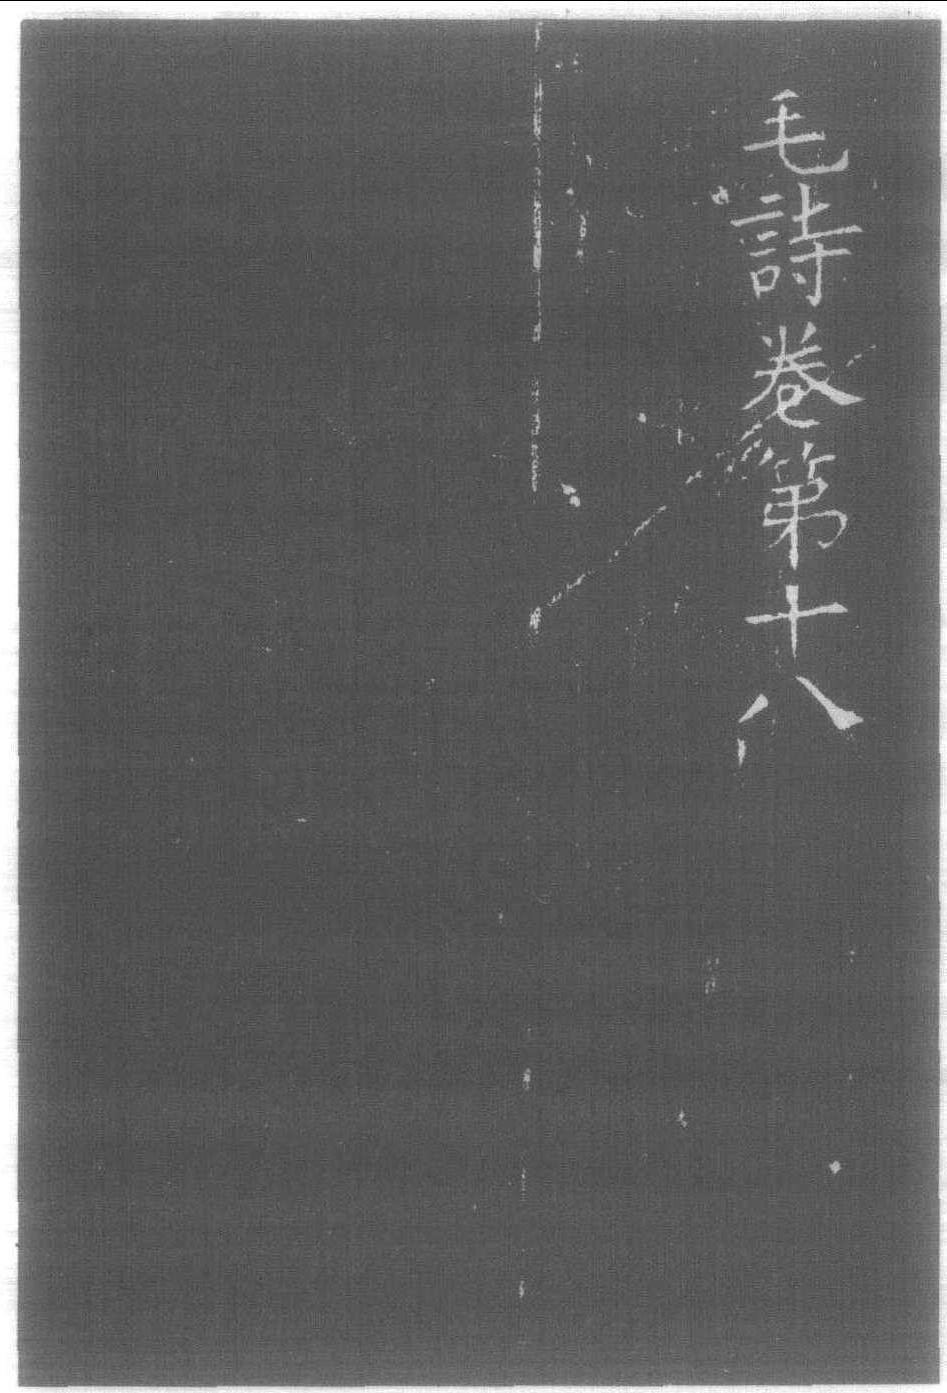 毛詩卷第十八